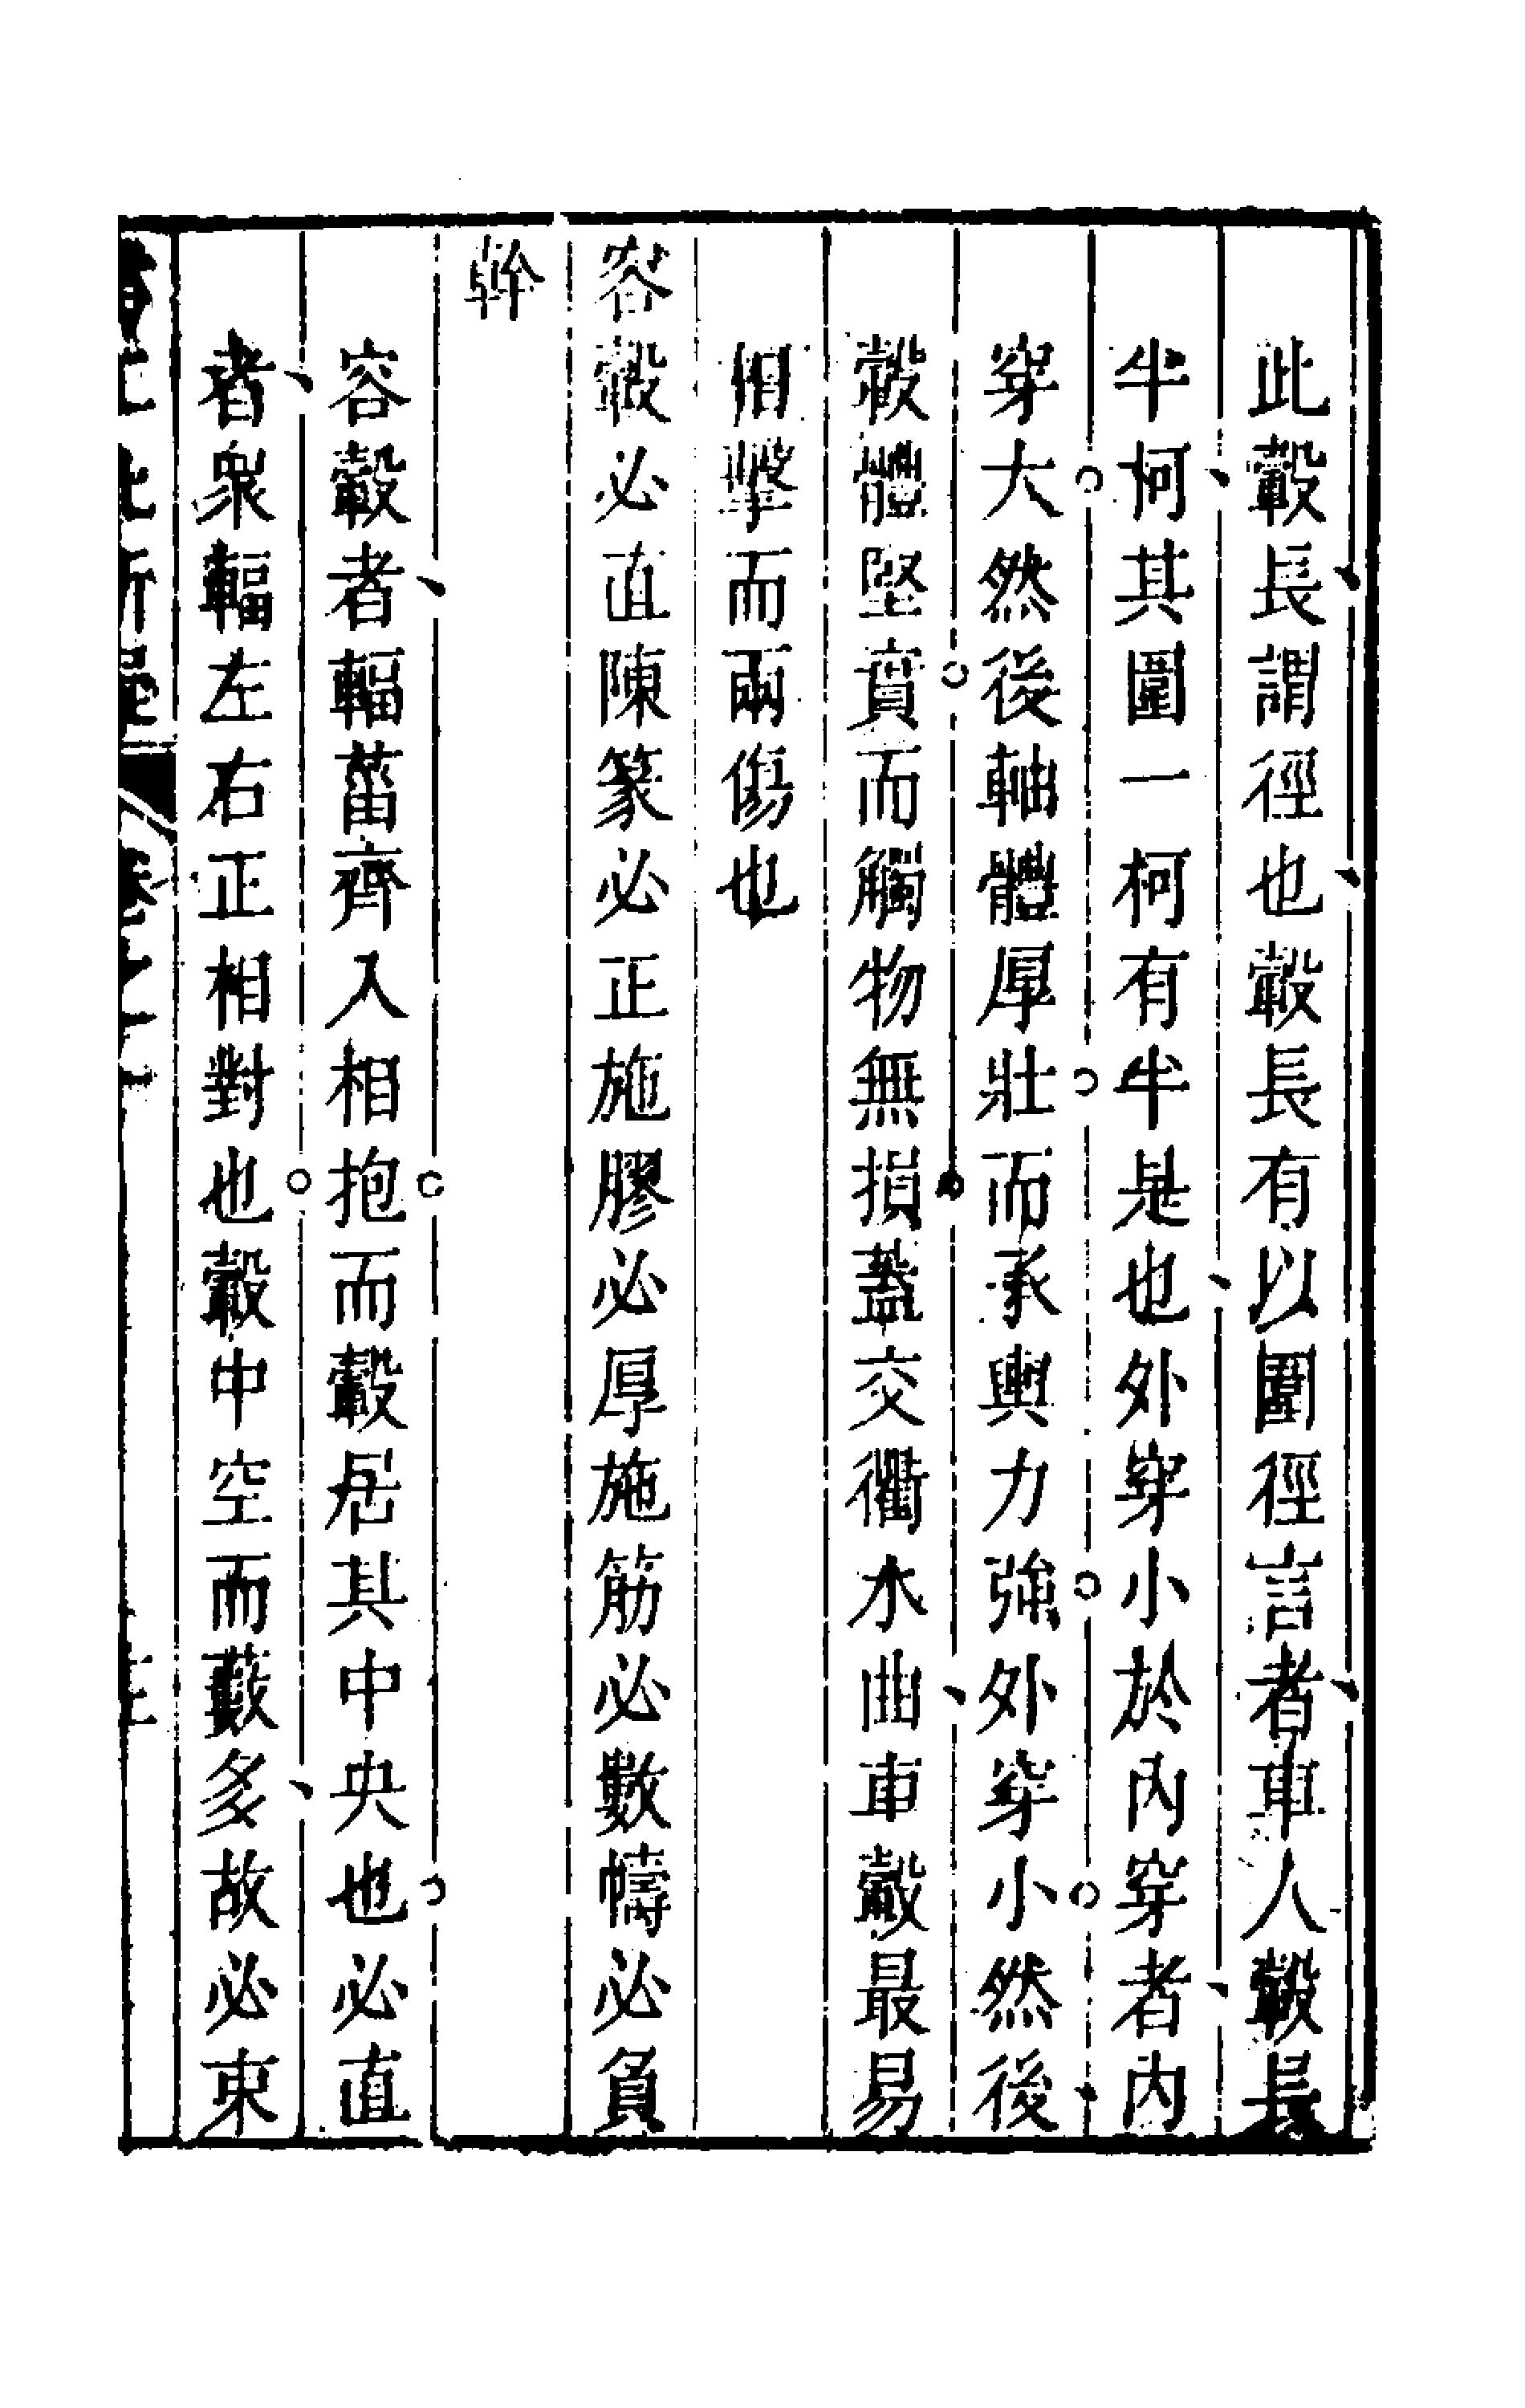 此轂長謂徑也轂長有以圍徑言者車人轂長
半柯其圍一柯有半是也外穿小於內穿者內
穿大然後軸體厚壯而承輿力強外穿小然後
轂體堅實而觸物無損蓋交衢水曲車轂最易
相擊而兩傷也
容轂必直陳篆必正施膠必厚施筋必數幬必負
幹
容轂者輻菑齊入相抱而轂居其中央也必直
者衆輻左右正相對也轂中空而藪多故必束